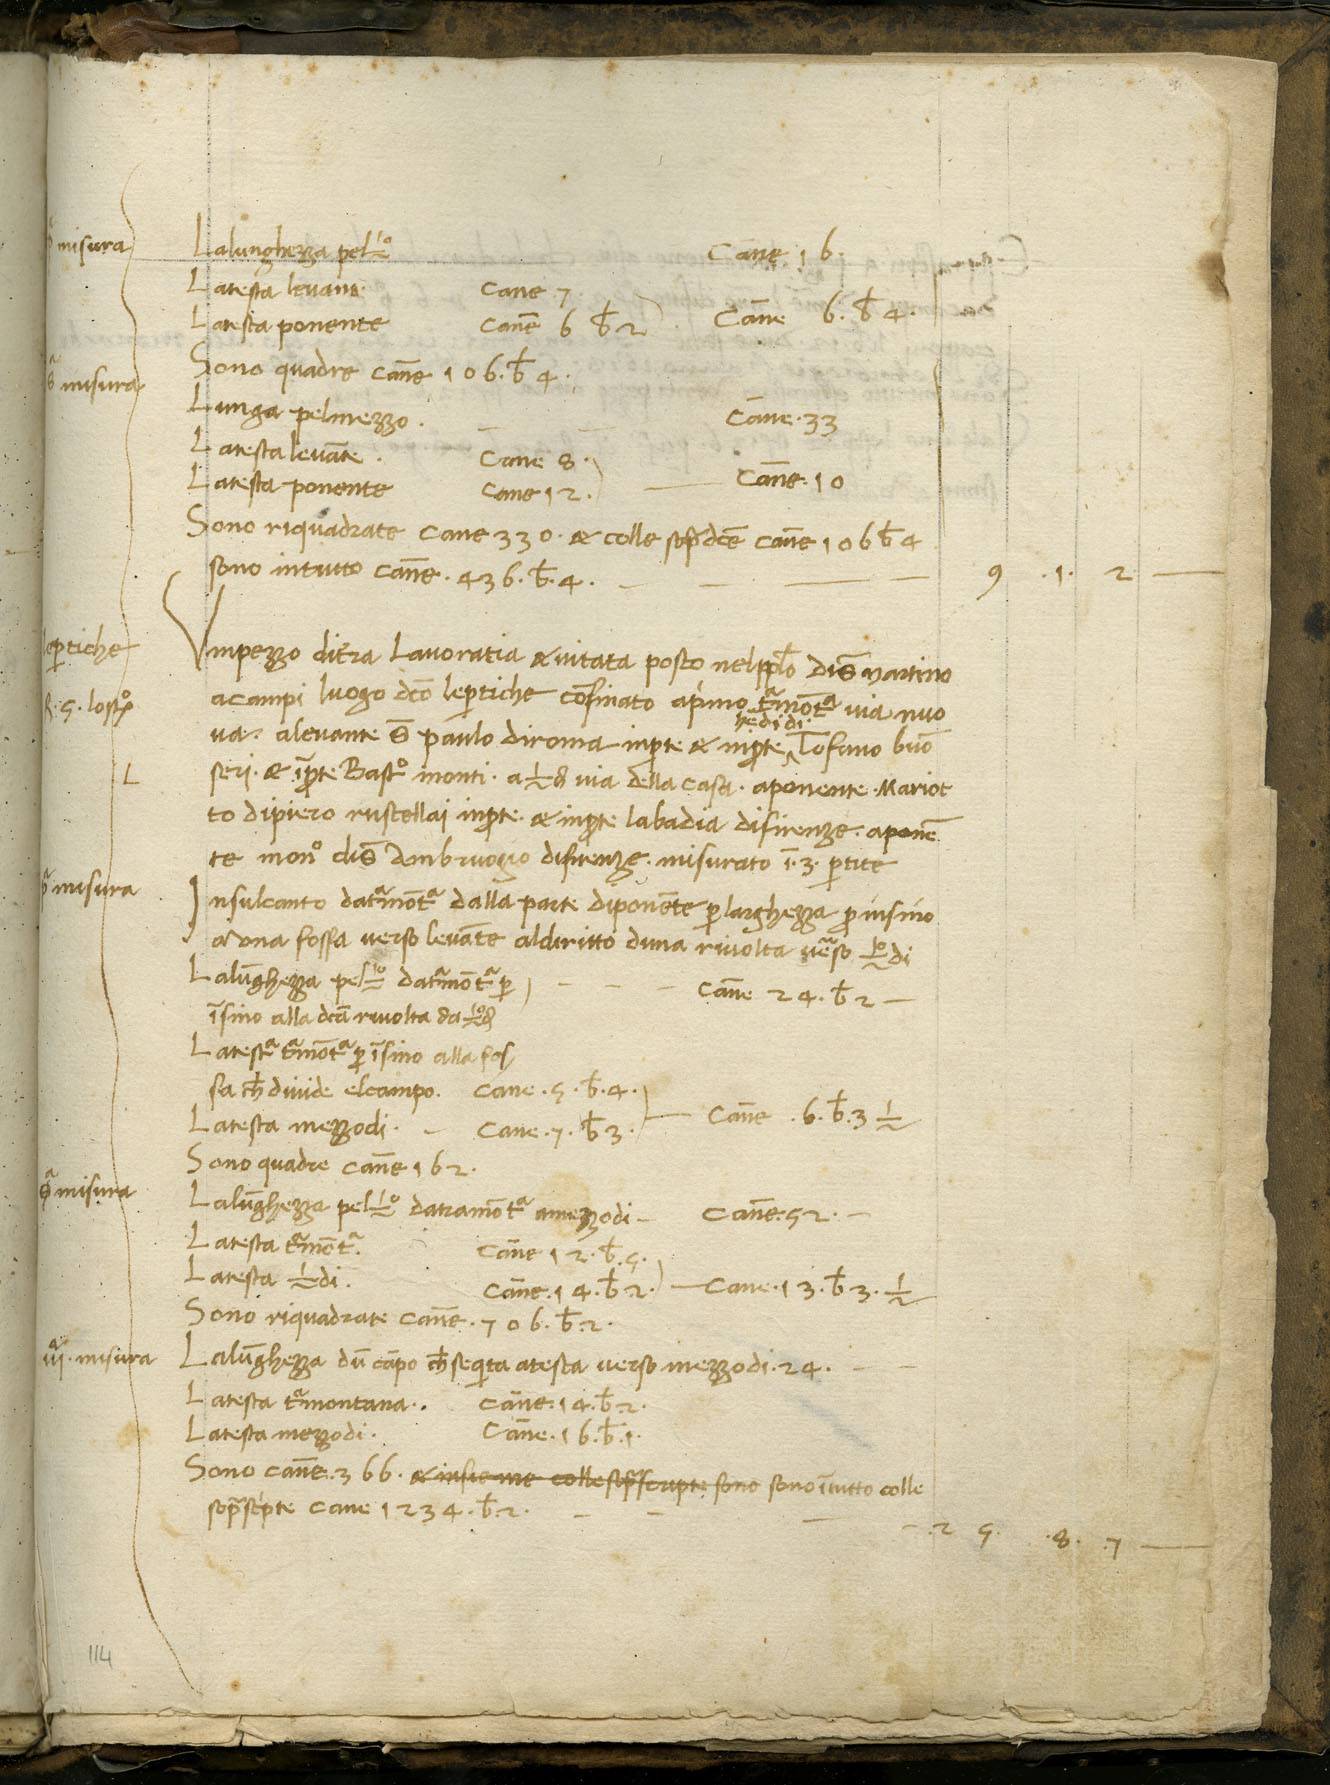 pª misura
Lalunghezza pel ½º Canne 16.
Latesta levante. Cane 7
Latesta ponente Canne 6 b 2 Canne 6. b 4.
Sono quadre canne 106. b 4.
sª misura
Lunga pelmezzo. Canne. 33
Latesta levāte. Cane 8.
Latesta ponente Cane 12. Canne. 10
Sono riquadrate Cane 330. & colle sopdcē canne 106 b 4
sono intutto canne. 436. b. 4. 9 .1. 2
lepertiche
Vmpezzo diterra Lavoratia & vitata posto nelpplo dis martino
acampi luogo dcō lepertiche confinato aprimo trªmontª via nuo
R. 5. lostº
va. alevante s paulo diroma inprte & inprte hedi di Tofano buō
L
seri. & īprte Bastº monti. a ½ dì via della casa. aponente. Mariot
to dipiero rustellai inprte. & inprte labadia difirenze. aponē
te monº dis Ambruogio difirenze. misurato ī. 3. partite
pª misura
Insulcanto datrªmontª dalla parte diponēte per larghezza per insino
aduna fossa verso levāte aldiritto duna rivolta verso ½º di
Lalūghezza pel ½º datrªmōtª per Canne 24. b 2
īsino alla dcā rivolta da ½º dì
Latestª trªmōtª per īsino alla fos
sa ch divide elcampo. Cane. 5. b. 4.
Latesta mezzodi. Cane. 7. b 3. Canne. 6. b. 3 ½
Sono quadre canne 162.
sª misura
Lalūghezza pel ½º datramōtª amezzodi Canne. 52.
Latesta trªmōtª. Canne 12. b. 5.
Latesta ½ di. Canne. 14. b. 2. Cane. 13. b. 3. ½
Sono riquadrate canne. 706. b. 2.
iiiª. misura
Lalūghezza dū cāpo ch seqita atesta verso mezzodi. 24.
Latesta trªmontana. Canne. 14. b. 2.
Latesta mezzodi. Canne. 16. b. 1.
Sono canne. 366. & insieme colle soprªscripte sono sono ītutto colle
soprªscripte Cane 1234. b. 2. 25. .8. .7
114